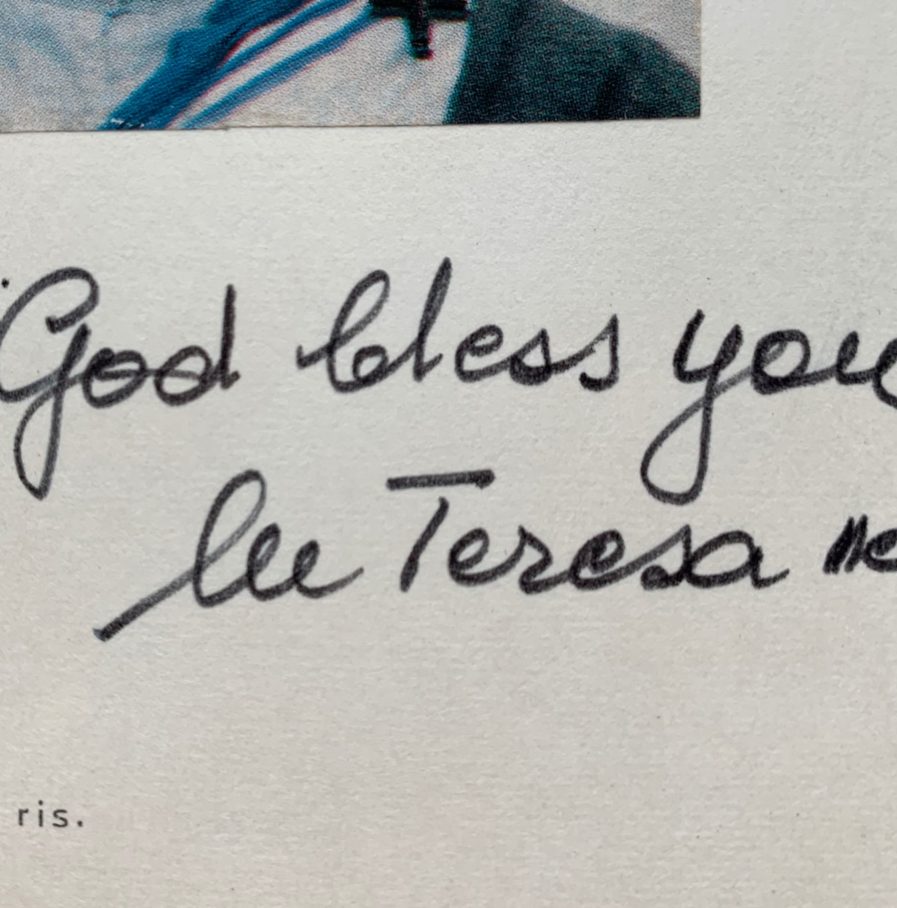 God bless you
lle Teresa mc
ris.